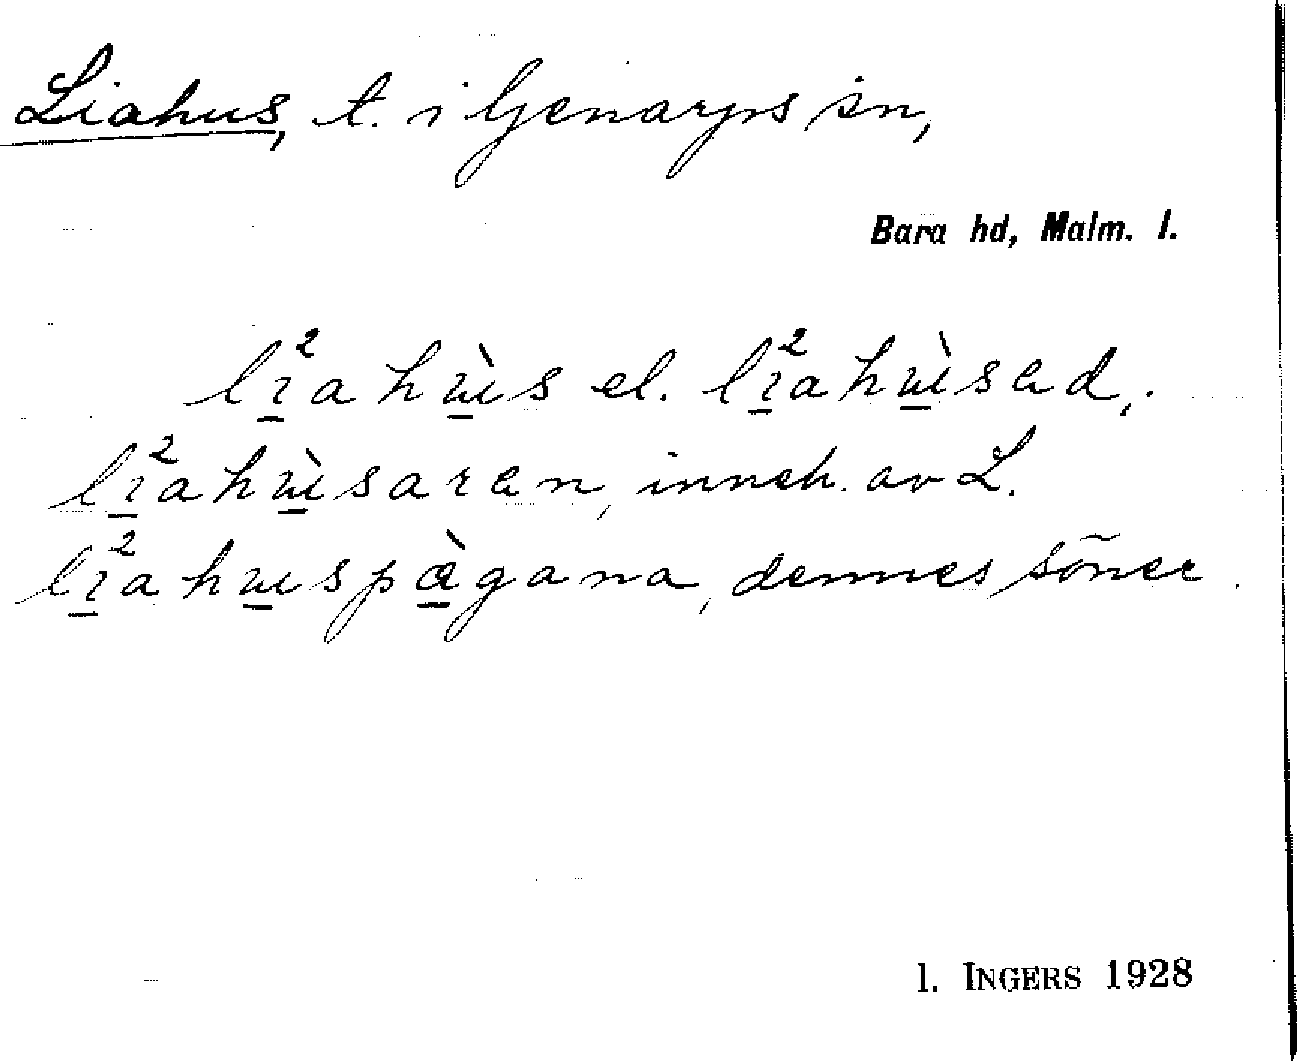 Liahus, t. i Genarps sn,
Bara hd, Malm. l.
lı̱²a hɯ̱̀s el. lı̱²ahɯ̱̀sad,.
lı̱²ahɯ̱̀saran, inneh. av L.
lı̱²ahɯ̱spæ̱̀gana, dennes söner.
I. INGERS 1928